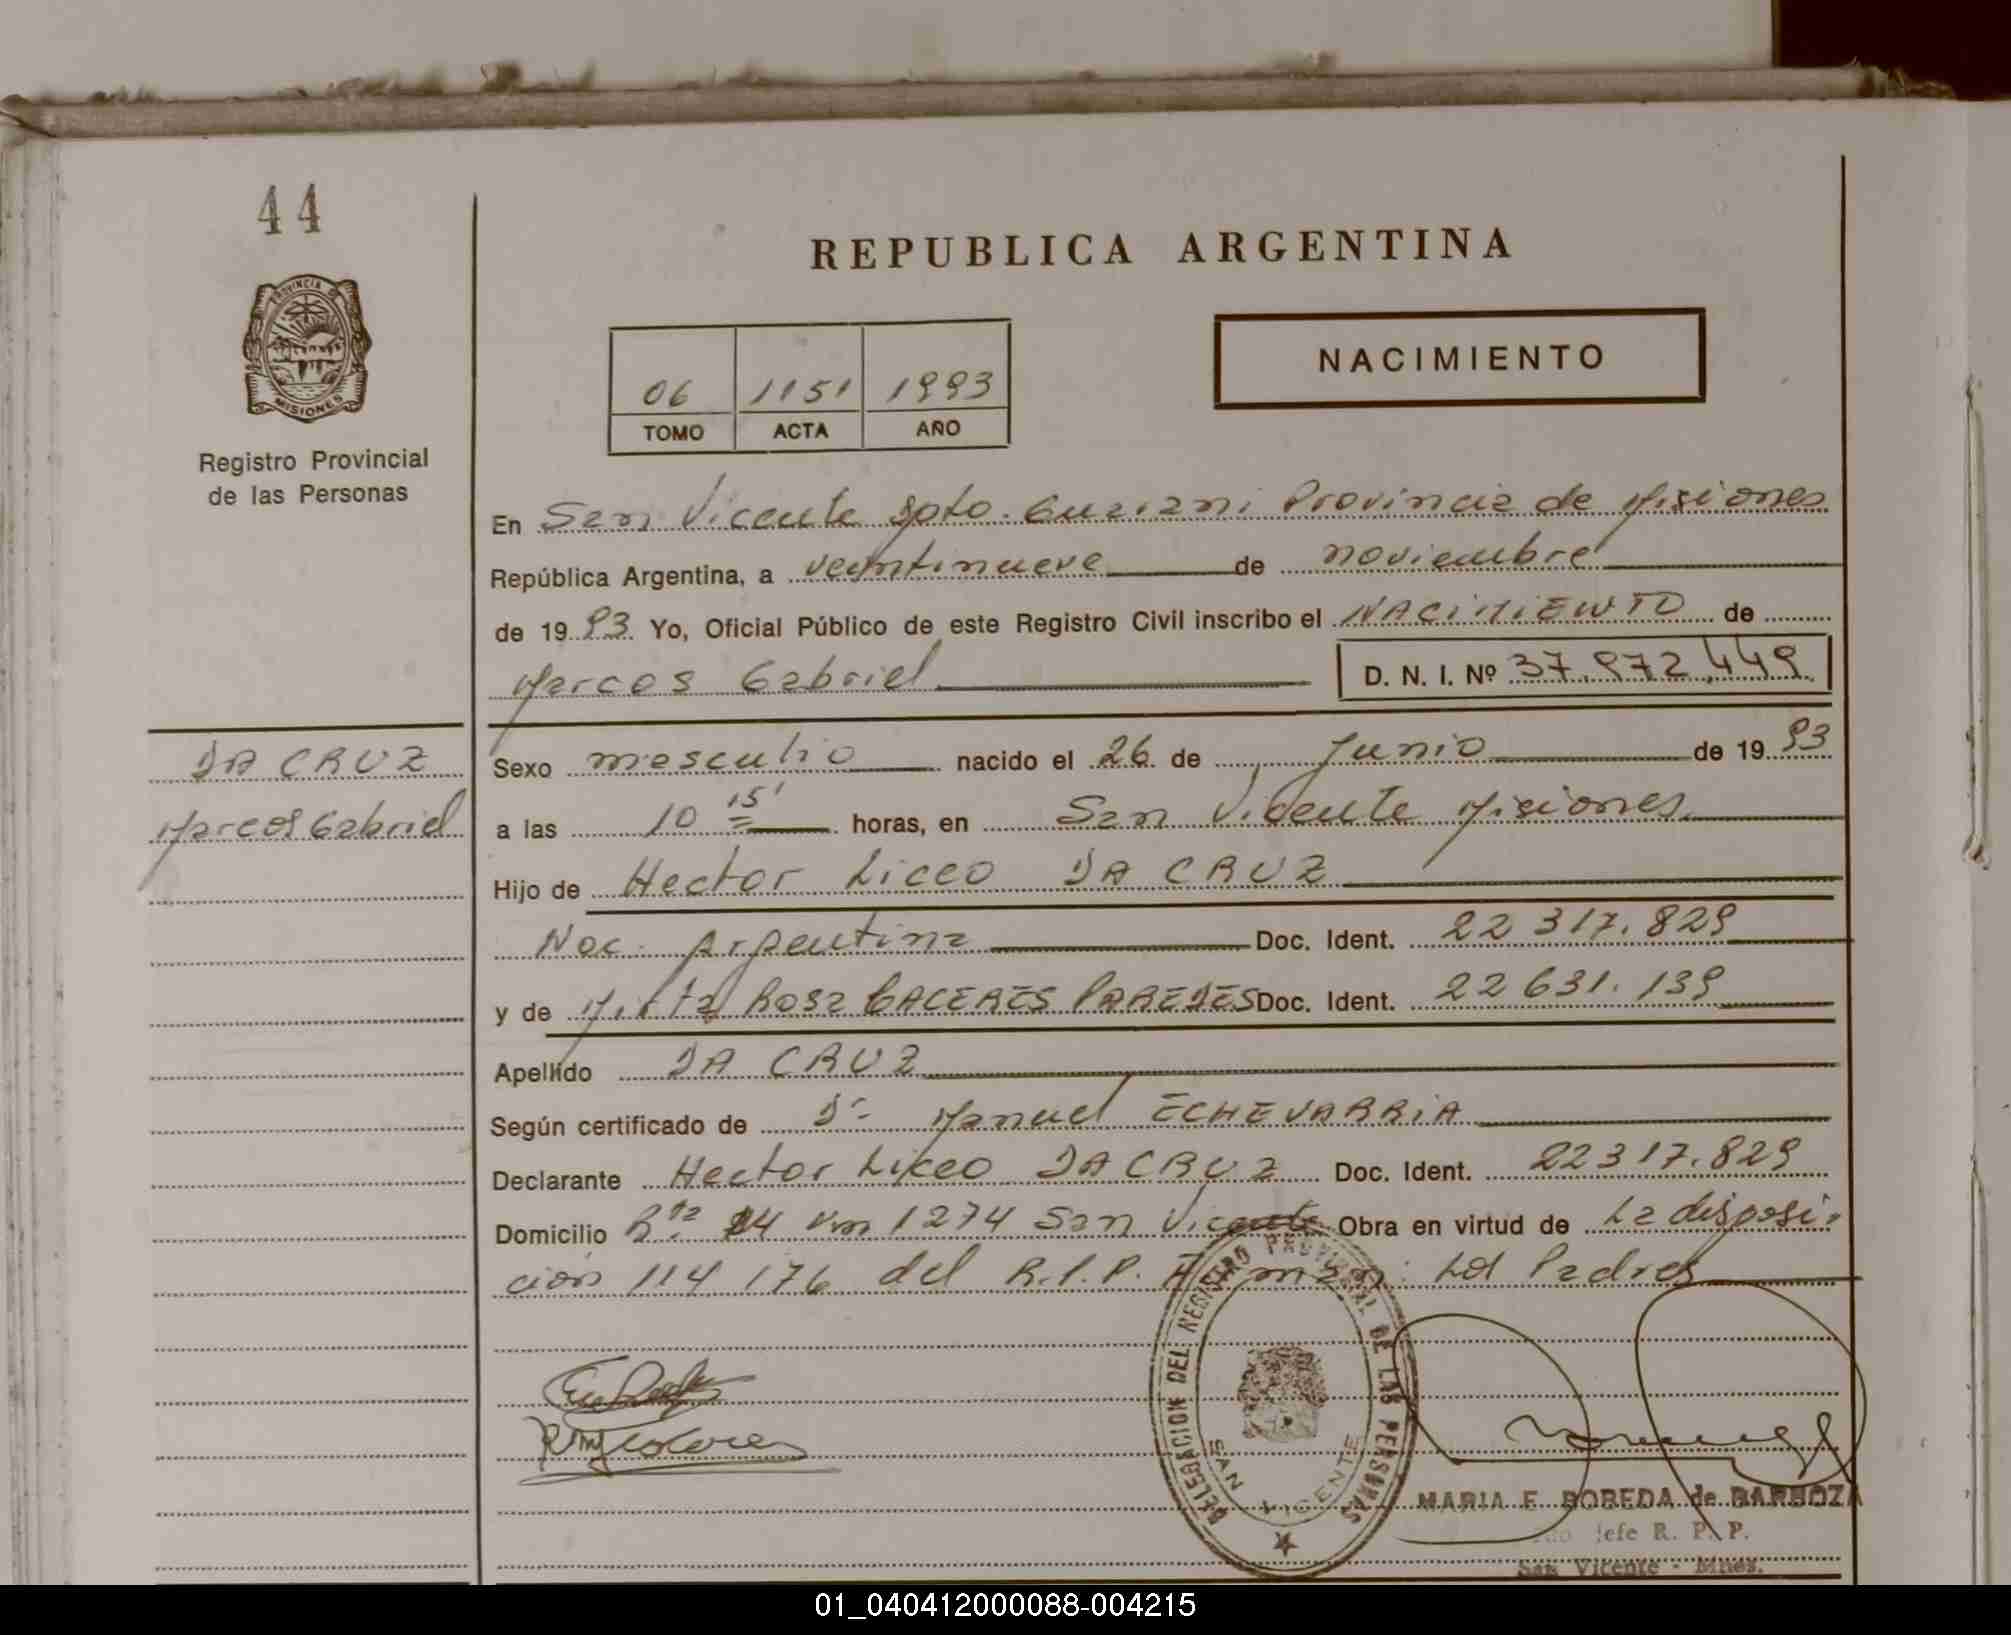 44
REPUBLICA ARGENTINA
PROVINCIA DE
MISIONES
Registro Provincial
de las Personas
NACIMIENTO
06 1151 1993
TOMO ACTA AÑO
En San Vicente Dpto. Guarani Provincia de Misiones
República Argentina, a veintinueve de noviembre
de 1993 Yo, Oficial Público de este Registro Civil inscribo el NACIMIENTO de
Marcos Gabriel D. N. I. Nº 37.972.449
DA CRUZ
Marcos Gabriel
Sexo masculio nacido el 26 de Junio de 1993
a las 10 15' horas, en San Vicente Misiones
Hijo de Hector Liceo DA CRUZ
Nac. Argentina Doc. Ident. 22 317.829
y de Mirta Rosa CACERES PAREDES Doc. Ident. 22 631.139
Apellido DA CRUZ
Según certificado de Dr. Manuel ECHEVARRIA
Declarante Hector Liceo DA CRUZ Doc. Ident. 22317.829
Domicilio Rta 14 Km 1274 San Vicente Obra en virtud de La disposi-
cion 114 176 del R.P.P. Los Padres
DELEGACION DEL REGISTRO PROVINCIAL DE LAS PERSONAS
SAN VICENTE
MARIA E. BOBEDA de BARBOZA
Jefe R. P. P.
San Vicente - Mnes.
01_040412000088-004215